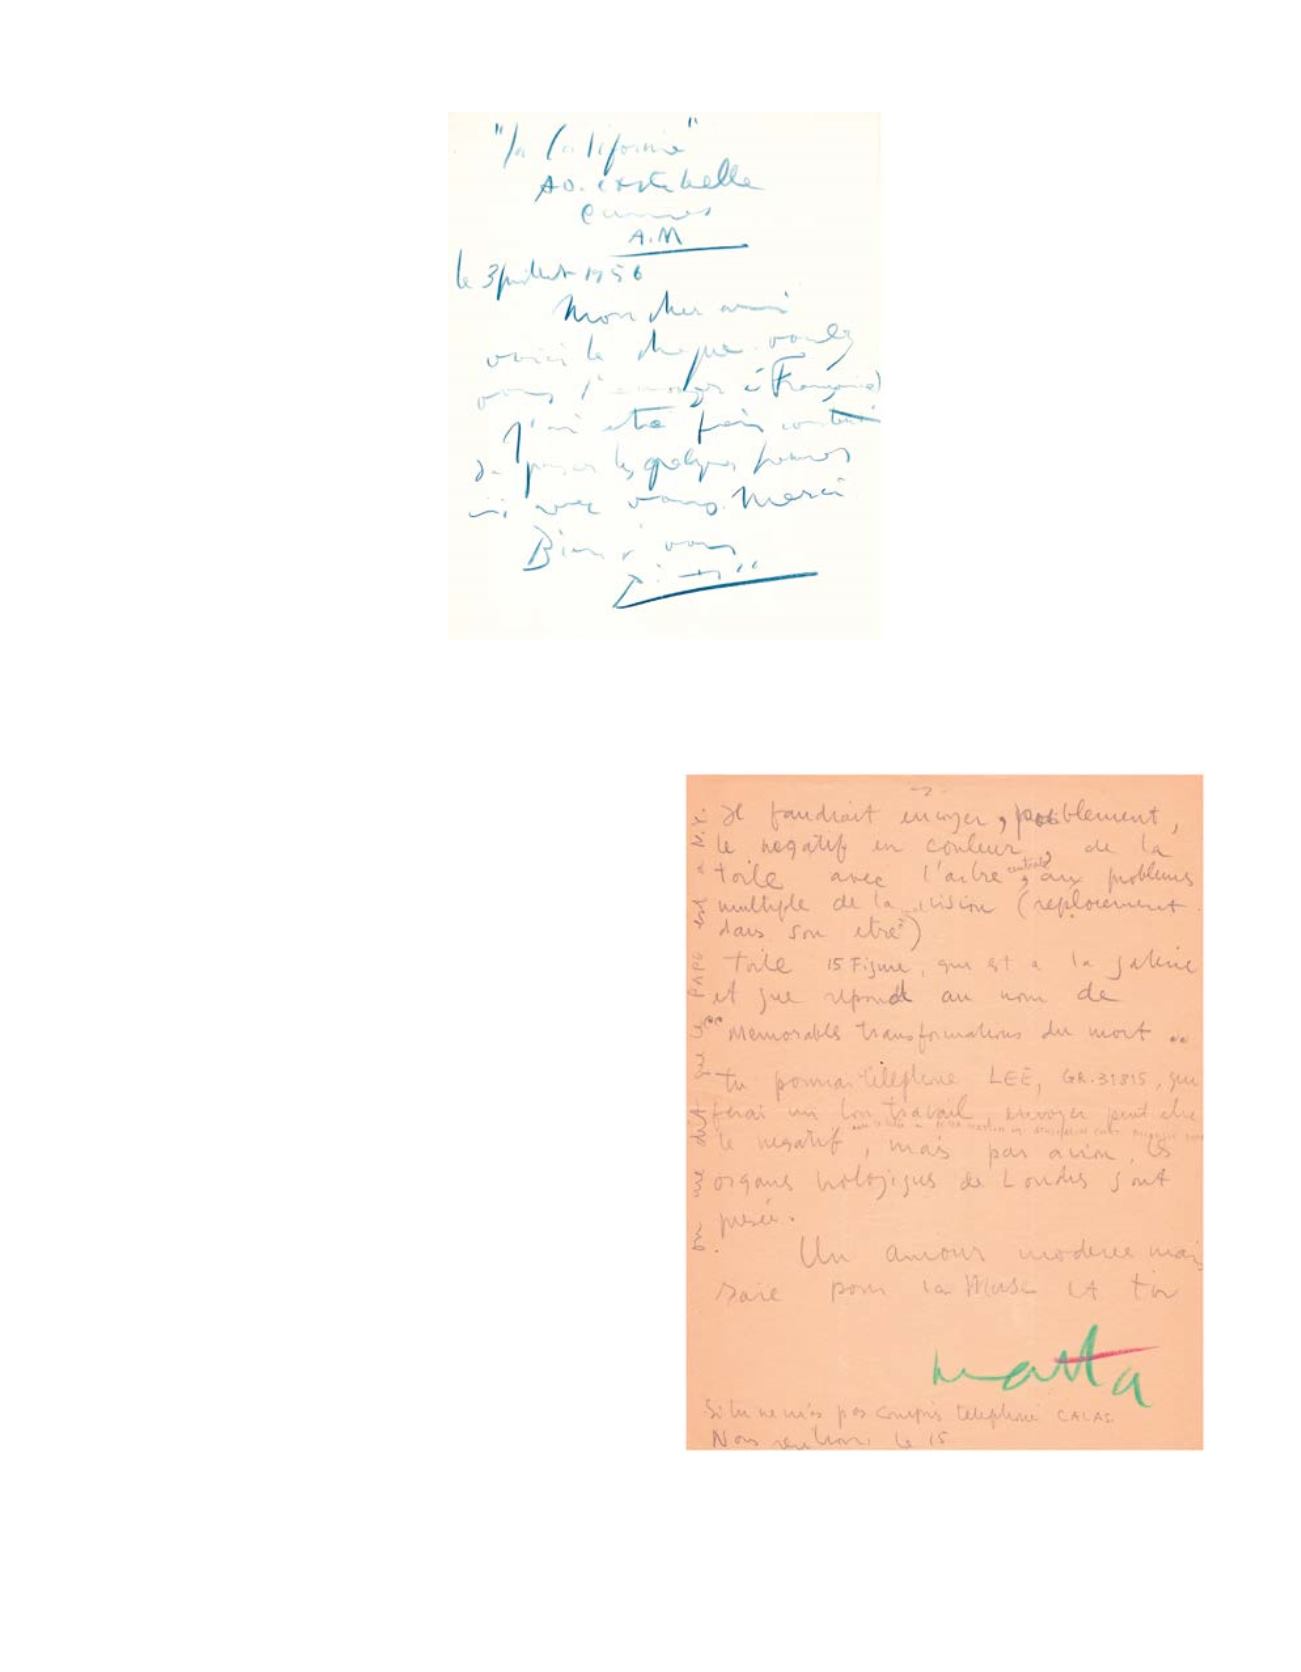 "La Californie"
Av. Costebelle
Cannes
A.M
le 3 juillet 1956
Mon cher ami
voici le cheque voulez
vous l'envoyer à Françoise
J'ai été très content
de passer les quelques heures
ici avec vous. Merci
Bien à vous
Picasso
Il faudrait envoyer, possiblement,
le negatif en couleur, de la
toile avec l'arbre central, aux problemes
multiple de la vision (reploiement
dans son etre)
toile 15 Figure, qui est a la galerie
et que repond au nom de
"Memorables transformations du mort"
tu pourrai telephone LEE, GR.31815, qui
ferai un bon travail envoyer peut etre
le negatif, mais par avion, les
organs biologiques de Londres sont
Un amour moderne mais
pour la Muse et toi
matta
Si tu ne m'as pas compris telephone CALAS.
Nous rentrons le 15
on me dit que le PAPE est a N.Y.